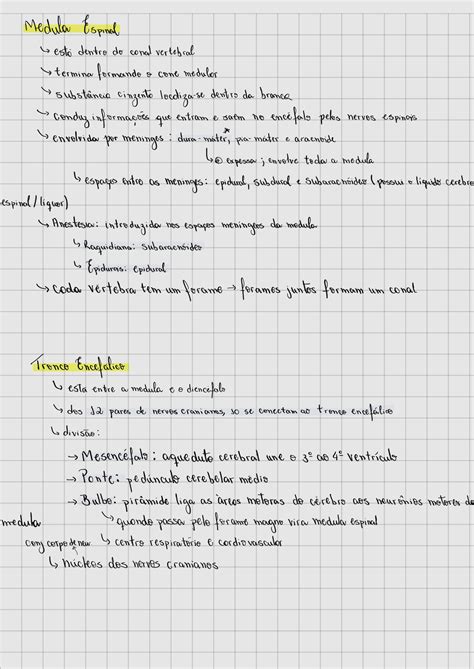 Medula Espinal
↳ está dentro do canal vertebral
↳ termina formando o cone medular
↳ substância cinzenta localiza-se dentro da branca
↳ conduz informações que entram e saem no encéfalo pelos nervos espinais
↳ envolvida por meninges: dura-máter*, pia-máter e aracnoide
↳ espessa; envolve toda a medula
↳ espaços entre as meninges: epidural, subdural e subaracnóideo (possui o líquido cérebro
espinal/liquor)
↳ Anestesia: introduzida nos espaços meníngeos da medula
↳ Raquidiana: subaracnóideo
↳ Epidurais: epidural
↳ cada vértebra tem um forame → forames juntos formam um canal
Tronco Encefálico
↳ está entre a medula e o diencéfalo
↳ dos 12 pares de nervos cranianos, 10 se conectam ao tronco encefálico
↳ divisão:
→ Mesencéfalo: aqueduto cerebral une o 3º ao 4º ventrículo
→ Ponte: pedúnculo cerebelar médio
→ Bulbo: pirâmide liga as áreas motoras do cérebro aos neurônios motores da
medula
↳ quando passa pelo forame magno vira medula espinal
↳ centro respiratório e cardiovascular
com corpo de neu
↳ núcleos dos nervos cranianos